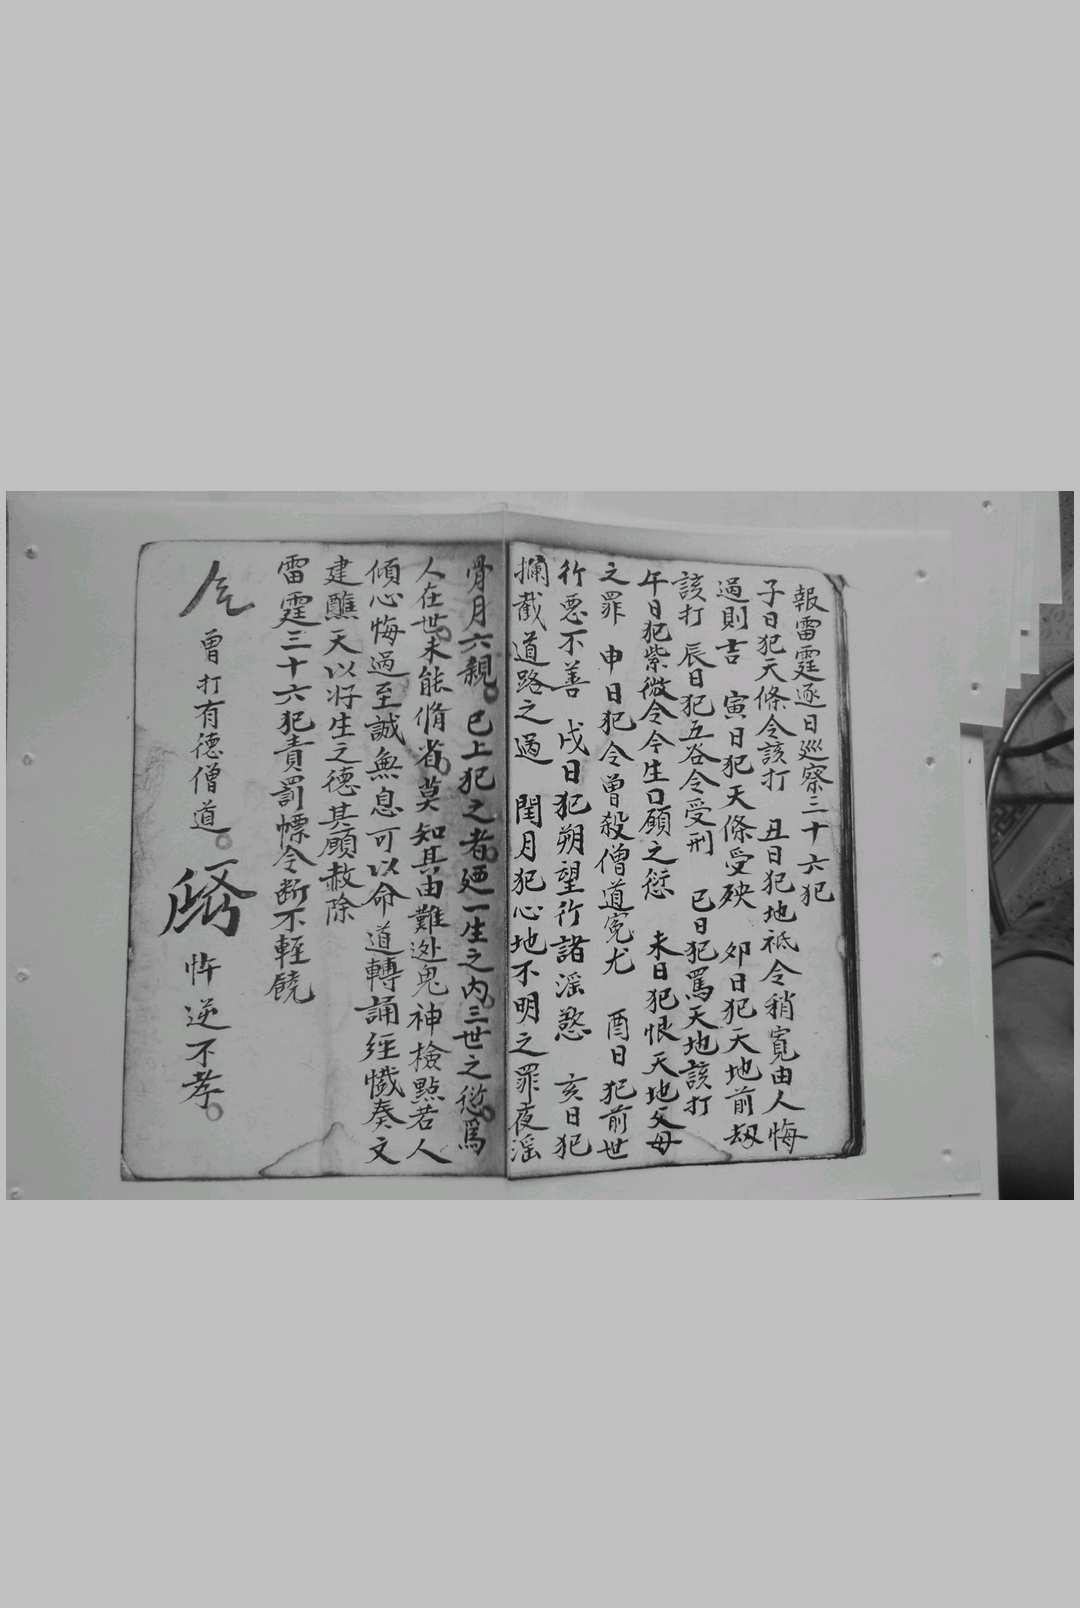 報雷霆逐日巡察三十六犯
子日犯天條令該打 丑日犯地祗令稍寬由人悔
過則吉 寅日犯天條受殃 卯日犯天地前劫
該打 辰日犯五谷令受刑 巳日犯罵天地該打
午日犯紫微令今生口願之愆 未日犯恨天地父母
之罪 申日犯令曾殺僧道冤尤 酉日犯前世
行惡不善 戌日犯朔望行諸淫慾 亥日犯
攔截道路之過 閏月犯心地不明之罪夜淫
骨月六親 已上犯之者 一生之內三世之愆為
人在世未能脩省莫知其由難迯鬼神檢點若人
傾心悔過至誠無息可以命道轉誦經懺奏文
建醮天以好生之德其願赦除
雷霆三十六犯責罰慓令断不輕饒
曾打有德僧道
忤逆不孝